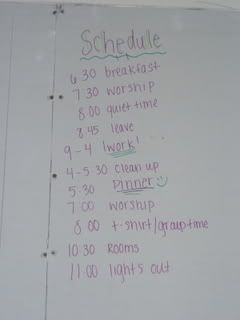 Schedule
6:30 breakfast
7:30 worship
8:00 quiet time
8:45 leave
9-4 !work!
4-5:30 clean up
5:30 Dinner
7:00 worship
8:00 t-shirt/group time
10:30 Rooms
11:00 lights out